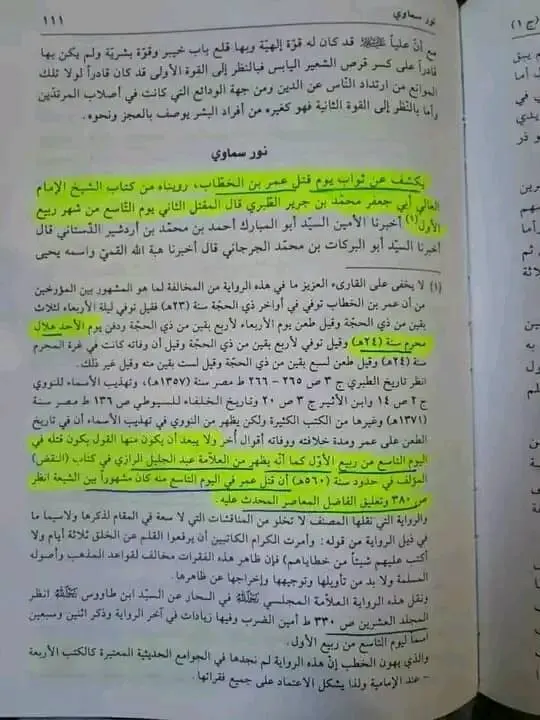 نور سماوي
١١١
مع أنّ علياً ﷺ قد كان له قوّة إلهيّة وبها قلع باب خيبر وقوّة بشريّة ولم يكن بها
قادراً على كسر قرص الشعير اليابس فبالنظر إلى القوة الأولى قد كان قادراً لولا تلك
الموانع من ارتداد النّاس عن الدين ومن جهة الودائع التي كانت في أصلاب المرتدّين
وأما بالنّظر إلى القوة الثانية فهو كغيره من أفراد البشر يوصف بالعجز ونحوه.
نور سماوي
يكشف عن ثواب يوم قتل عمر بن الخطّاب، رويناه من كتاب الشيخ الإمام
العالي أبي جعفر محمّد بن جرير الطّبري قال المقتل الثاني يوم التّاسع من شهر ربيع
الأول(١) أخبرنا الأمين السيّد أبو المبارك أحمد بن محمّد بن أردشير الدّستاني قال
أخبرنا السيّد أبو البركات بن محمّد الجرجاني قال أخبرنا هبة الله القميّ واسمه يحيى
(١) لا يخفى على القارىء العزيز ما في هذه الرواية من المخالفة لما هو المشهور بين المؤرخين
من أن عمر بن الخطاب توفي في أواخر ذي الحجّة سنة (٢٣هـ) فقيل توفي ليلة الأربعاء لثلاث
بقين من ذي الحجّة وقيل طعن يوم الأربعاء لأربع بقين من ذي الحجة ودفن يوم الأحد هلال
محرم سنة (٢٤هـ) وقيل توفي لأربع بقين من ذي الحجّة وقيل أن وفاته كانت في غرة المحرم
سنة (٢٤هـ) وقيل طعن لسبع بقين من ذي الحجّة وقيل لست بقين منه وقيل غير ذلك.
انظر تاريخ الطبري ج ٣ ص ٢٦٥ - ٢٦٦ ط مصر سنة (١٣٥٧هـ)، وتهذيب الأسماء للنووي
ج ٢ ص ١٤ وابن الأثير ج ٣ ص ٢٠ وتاريخ الخلفاء للسيوطي ص ١٣٦ ط مصر سنة
(١٣٧١هـ) وغيرها من الكتب الكثيرة ولكن يظهر من النووي في تهذيب الأسماء أن في تاريخ
الطعن على عمر ومدة خلافته ووفاته أقوال أخر ولا يبعد أن يكون منها القول يكون قتله في
اليوم التاسع من ربيع الأوّل كما أنّه يظهر من العلامة عبد الجليل الرازي في كتاب (النقض)
المؤلف في حدود سنة (٥٦٠هـ) أن قتل عمر في اليوم التاسع منه كان مشهوراً بين الشيعة انظر
ص ٣٨٠ وتعليق الفاضل المعاصر المحدث عليه.
والرواية التي نقلها المصنف لا تخلو من المناقشات التي لا سعة في المقام لذكرها ولاسيما ما
في ذيل الرواية من قوله: وأمرت الكرام الكاتبين أن يرفعوا القلم عن الخلق ثلاثة أيام ولا
أكتب عليهم شيئاً من خطاياهم) فإن ظاهر هذه الفقرات مخالف لقواعد المذهب وأصوله
المسلمة ولا بد من تأويلها وتوجيهها وإخراجها عن ظاهرها.
ونقل هذه الرواية العلامة المجلسي ﷺ في البحار عن السيّد ابن طاووس ﷺ انظر
المجلد العشرين ص ٣٣٠ ط أمين الضرب وفيها زيادات في آخر الرواية وذكر اثنين وسبعين
اسماً ليوم التاسع من ربيع الأول.
والذي يهون الخطب إنّ هذه الرواية لم نجدها في الجوامع الحديثية المعتبرة كالكتب الأربعة
- عند الإمامية ولذا يشكل الاعتماد على جميع فقراتها.